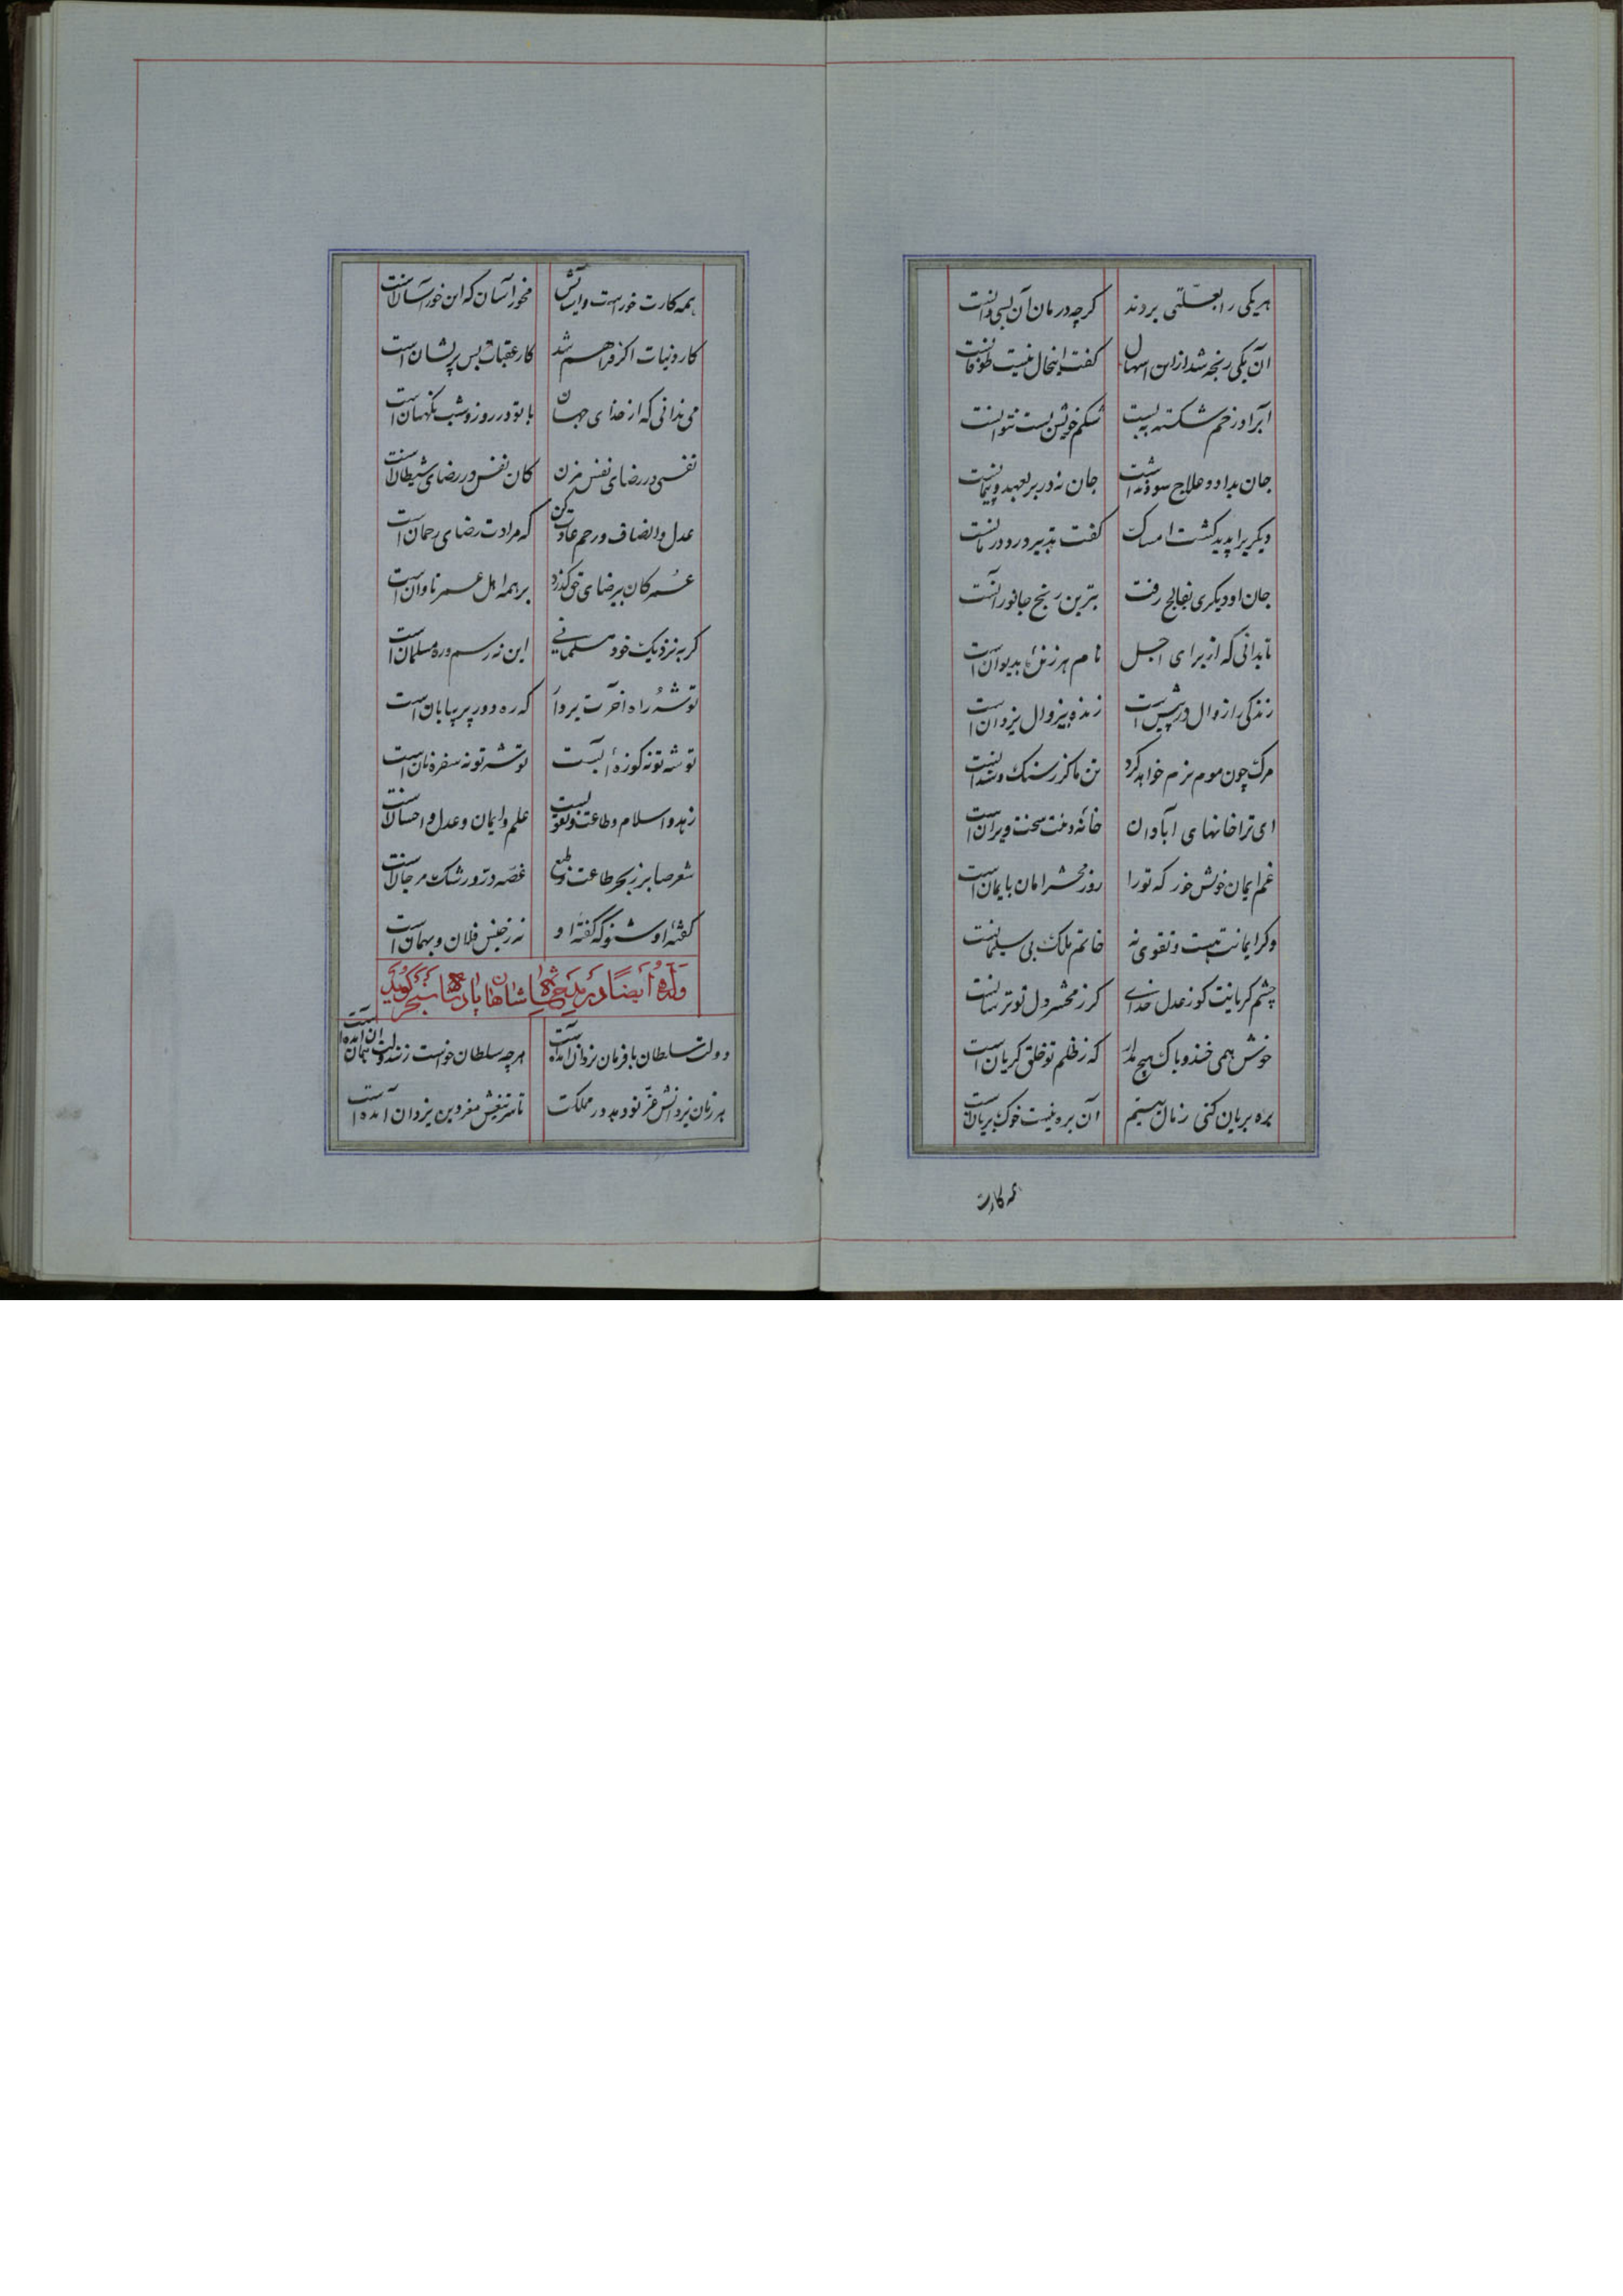 هریکی را بعلتی بردند گرچه درمان آن بسی دانست
آن یکی رنجه شد از اسهال گفت این حال نیست طوفانست
آنرا در خم شکسته به بست شکم خویش بست نتوانست
جان بداد و علاج سود نداشت جان نه در بر بعهد و پیمانست
دیگریرا پدید گشت امساک گفت تدبیر درد درمانست
جان او دیگری بفالج رفت بترین رنج جانور آنست
تا بدانی که از برای اجل نام هر زنده بدیوان است
زندگی را زوال در پیش است زنده بیزوال یزدان است
مرگ چون موم نرم خواهد کرد تن ما گر ز سنگ و سندانست
ای ترا خانهای آبادان خانه دینت سخت ویران است
غم ایمان خویش خور که تو را روز محشر امان بایمان است
وگر ایمانت هست و تقوی نه خاتم ملک بی سلیمانست
چشم گریانت کو ز عدل خدای گر ز محشر دل تو ترسانست
خوش همی خند و باک هیچ مدار که ز ظلم تو خلق گریان است
بره بریان کنی ز مال یتیم آن بره نیست خوک بریانست
همه کارت
همه کارت خور است و آسایش مخور آسان که این خور آسانست
کار دنیات اگر فراهم شد کار عقبات بس پریشان است
می ندانی که از خدای جهان با تو در روز و شب نگهبان است
نفسی در رضای نفس مزن کان نفس در رضای شیطانست
عدل و انصاف و رحم عادت کن که مرادت رضای رحمان است
عمر کان بیرضای حق گذرد بر همه اهل عمر تاوان است
گر به نزدیک خود مسلمانی این نه رسم و ره مسلمان است
توشه راه آخرت بردار که ره دور پر بیابان است
توشه تو نه کوزه آبست توشه تو نه سفره نان است
زهد و اسلام و طاعت و تقویست علم و ایمان و عدل و احسانست
شعر صابر ز بحر طاعت و طبع غصه در و رشک مرجانست
گفته او شنو که گفته او نه ز جنس فلان و بهمان است
وله ایضا در مدح شاهنشاهان پادشاه سنجر گوید
دولت سلطان بافرمان یزدان آمده است هرچه سلطان خواست زیزد دولت همان آمده است
هر زمان یزدانش عز نو دهد در مملکت تا سر تیغش معز دین یزدان آمده است